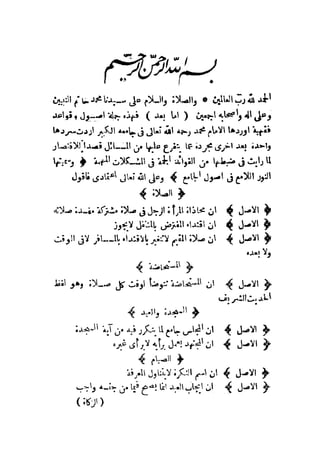 بسم الله الرحمن الرحيم
الحمد لله رب العالمين * والصلاة والسلام على سيدنا محمد خاتم النبيين
وعلى اله واصحابه اجمعين ( اما بعد ) فهذه جملة اصول و قواعد
فقهية اوردها الامام محمد رحمه الله تعالى فى جامعه الكبير اردت سردها
واحدة بعد اخرى مجردة عما يتفرع عليها من المسائل قصدا للاقتصار
لما رايت فى ضبطها من الفوائد الجمة فى المشكلات المهمة ﴿ وسميتها
النور اللامع فى اصول الجامع ﴾ وعلى الله تعالى اعتمادى فاقول
﴿ الصلاة ﴾
﴿ الاصل ﴾ ان محاذاة المرأة الرجل فى صلاة مشتركة مفسدة صلاته
﴿ الاصل ﴾ ان اقتداء المفترض بالمتنفل لايجوز
﴿ الاصل ﴾ ان صلاة المقيم لاتتغير بالاقتداء بالمسافر لافى الوقت
ولا بعده
﴿ المستحاضة ﴾
﴿ الاصل ﴾ ان المستحاضة تتوضأ لوقت كل صلاة وهو لفظ
الحديث الشريف
﴿ السجدة والعيد ﴾
﴿ الاصل ﴾ ان المجلس جامع لما يتكرر فيه من آية السجدة
﴿ الاصل ﴾ ان المجتهد يعمل برأيه لابرأى غيره
﴿ الصيام ﴾
﴿ الاصل ﴾ ان اسم النكرة لايتناول المعرفة
﴿ الاصل ﴾ ان ايجاب العبد انما يصح فيما من جنسه واجب
( الزكاة )